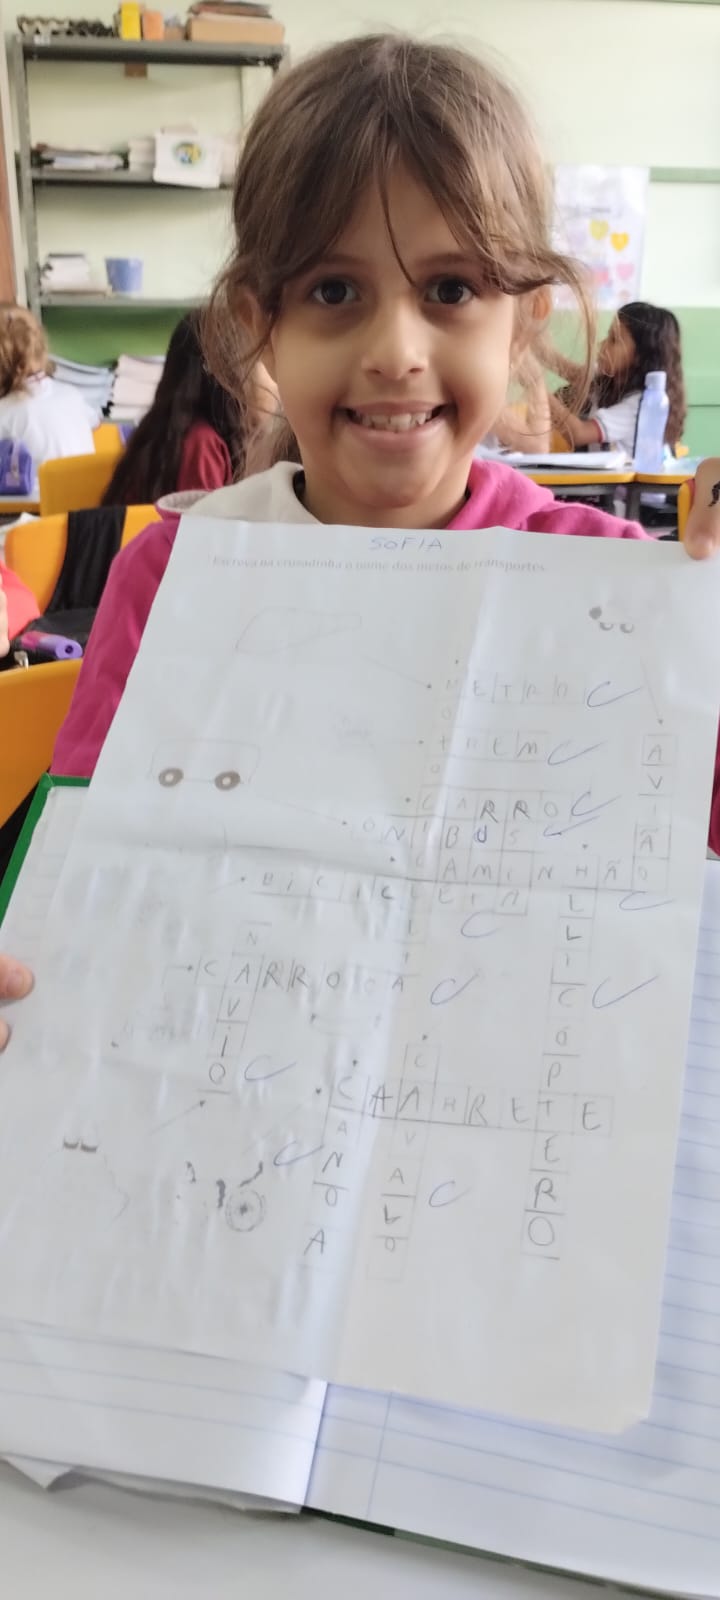 SOFIA
Escreva na cruzadinha o nome dos meios de transportes.
METRO
TREM
AVIÃO
CARRO
ONIBUS
CAMINHÃO
BICICLETA
CARROCA
NAVIO
CANOA
CAVALO